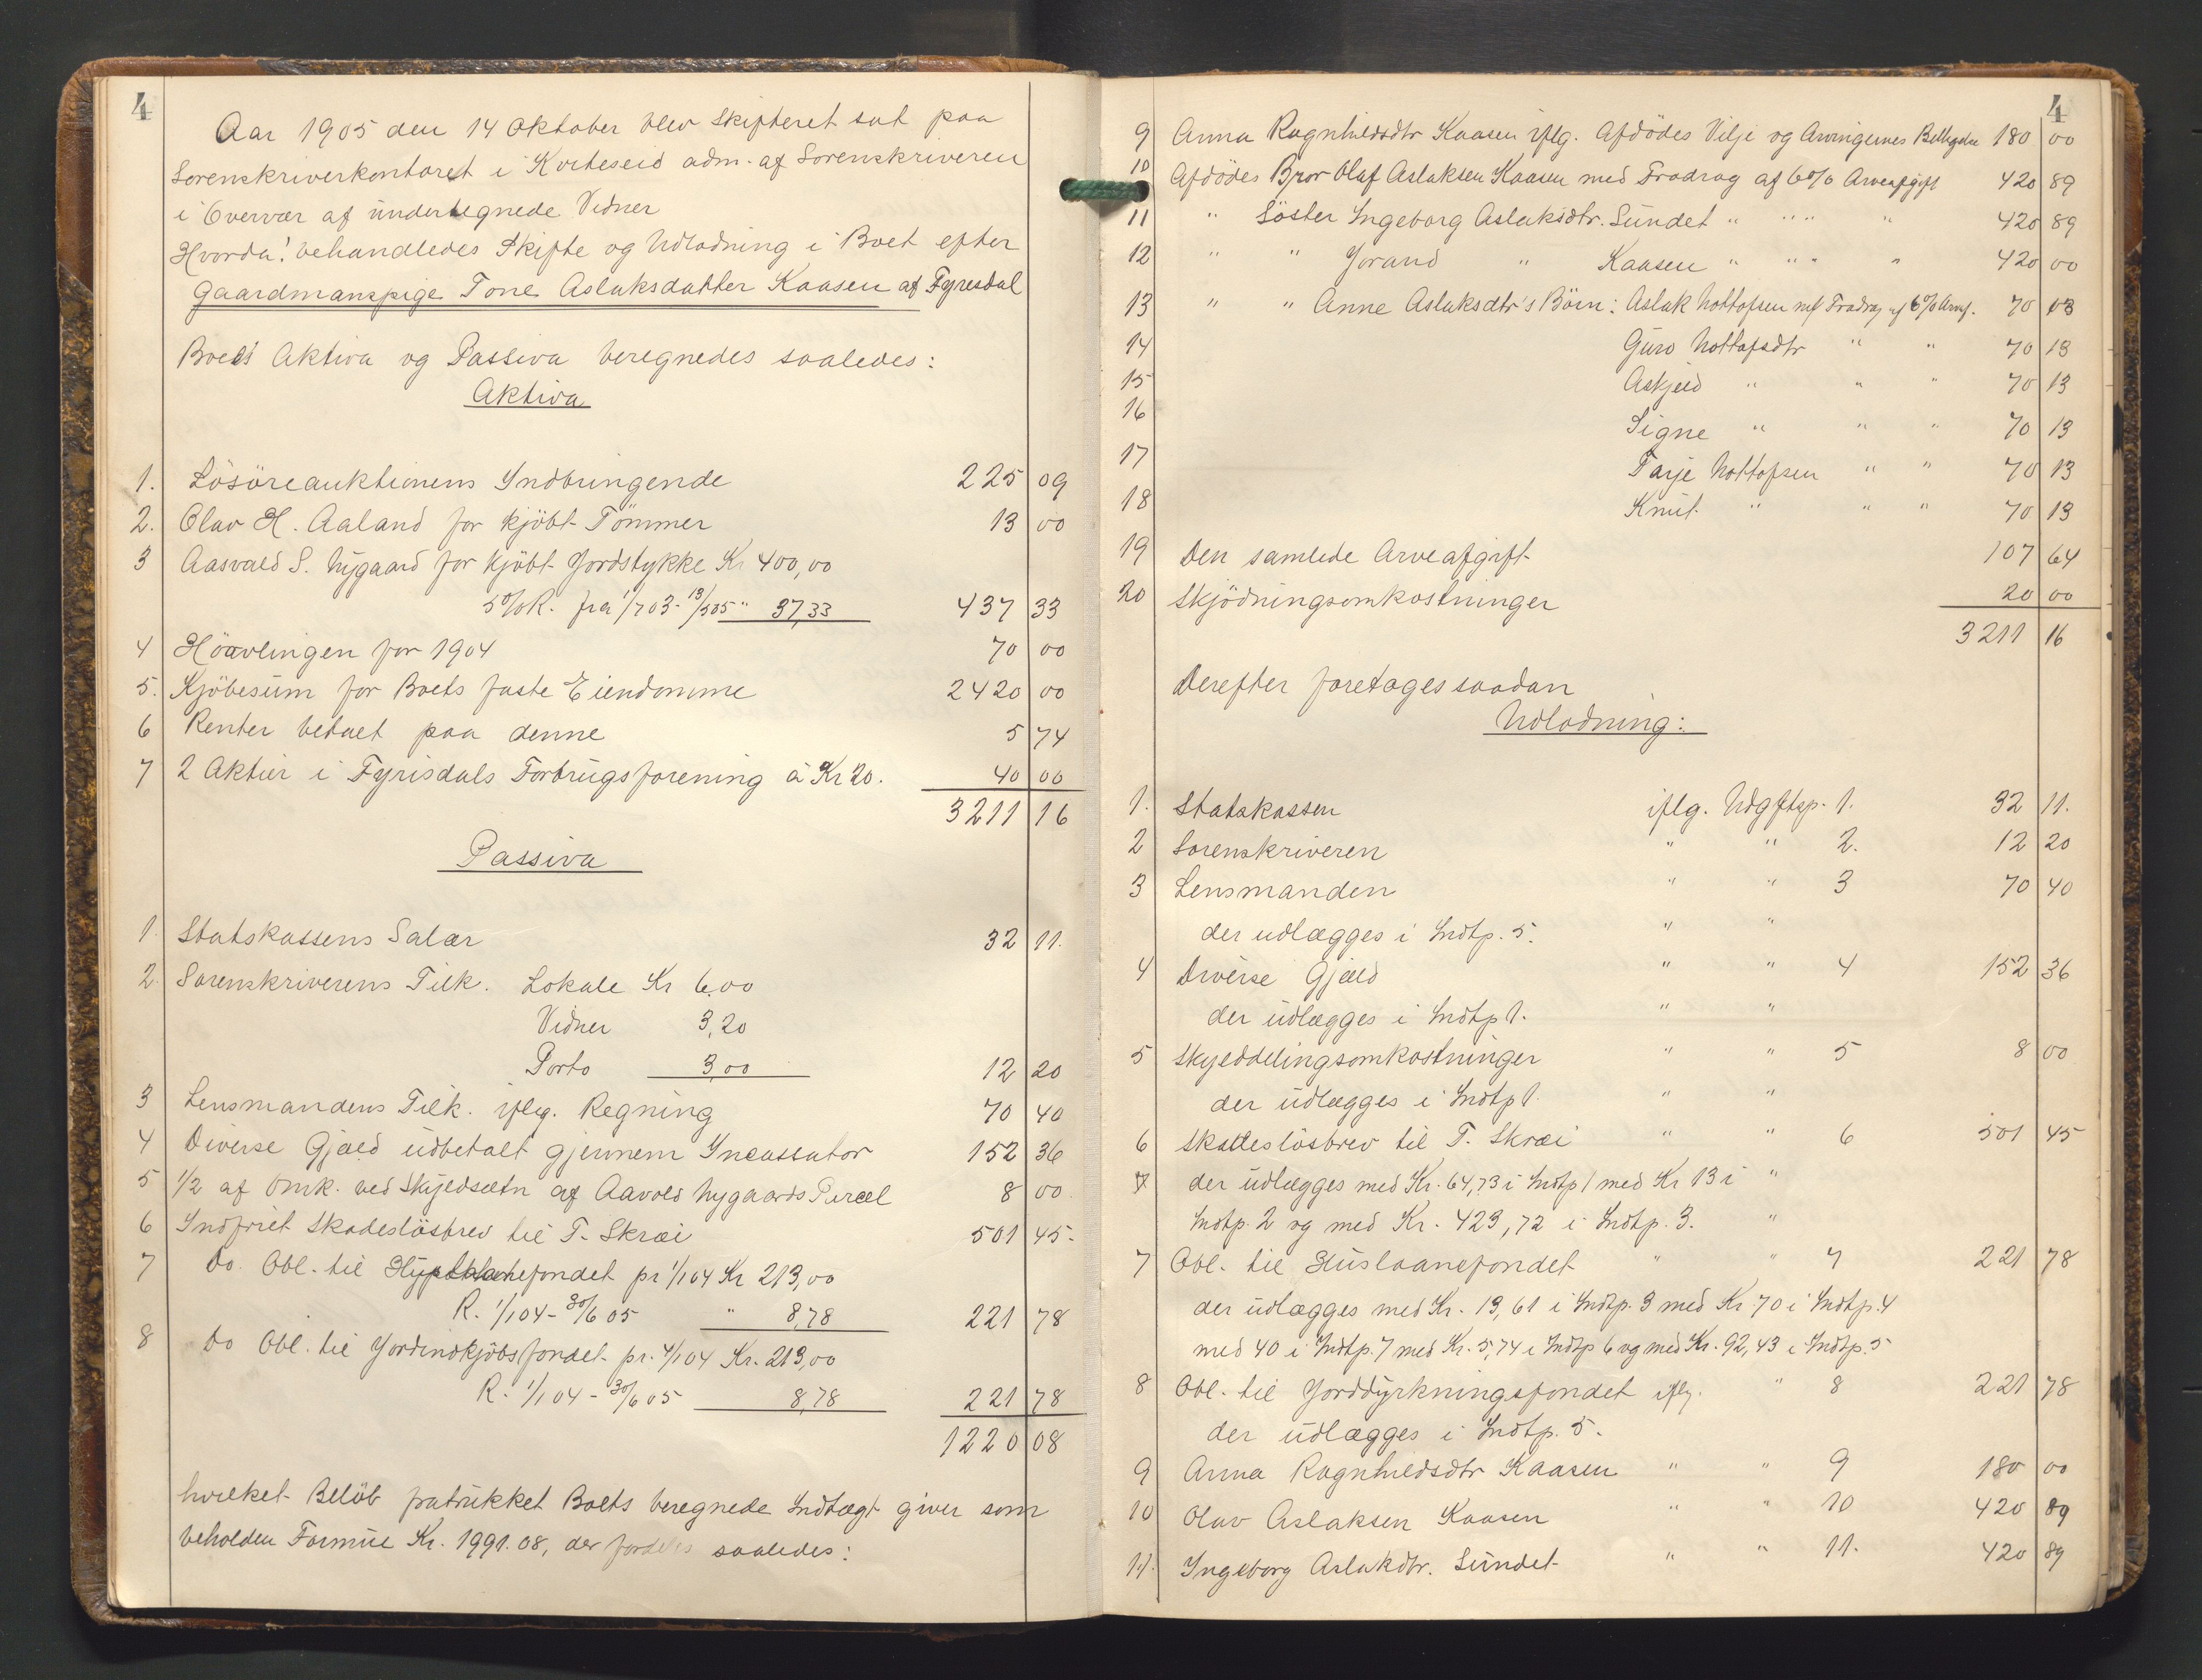 4
Aar 1905 den 14 Oktober blev Skifteret sat paa
Sorenskriverkontoret i Kviteseid adm. af Sorenskriveren
i Overvær af undertegnede Vidner
Hvorda! behandledes Skifte og Udlodning i Boet efter
Gaardmanspige Tone Aslaksdatter Kaasen af Fyresdal
Boets Aktiva og Passiva beregnedes saaledes:
Aktiva
1. Lösöreauktionens Indbringende 225 09
2. Olav H. Aaland for kjöbt Tömmer 13 00
3 Aasvald S. Nygaard for kjöbt Jordstykke Kr 400,00
5% R. fra 1/7 03 - 13/5 05 " 37,33 437 33
4 Höavlingen for 1904 70 00
5. Kjöbesum for Boets faste Eiendomme 2420 00
6 Renter betalt paa denne 5 74
7 2 Aktier i Fyrisdals Forbrugsforening á Kr 20. 40 00
3211 16
Passiva
1. Statskassens Salær 32 11.
2. Sorenskriverens Tilk. Lokale Kr 6.00
Vidner 3,20
Porto 3,00 12 20
3 Lensmandens Tilk. iflg. Regning 70 40
4 Diverse Gjæld udbetalt gjennem Incassator 152 36
5 1/2 af Omk. ved Skyldsætn af Aavold Nygaards Parcel 8 00
6 Indfriet Skadeslösbrev til T. Skræi 501 45-
7 Do. Obl. til fondet pr 1/1 04 Kr 213,00
R. 1/1 04 - 30/6 05 " 8,78 221 78
8 Do Obl. til Jordindkjöbsfondet pr. 1/1 04 Kr. 213,00
R. 1/1 04 - 30/6 05 8,78 221 78
1220 08
hvilket Belöb fratrukket Boets beregnede Indtægt giver som
beholden Formue Kr. 1991.08, der fordeles saaledes:
4
9 Anna Ragnhildsdtr Kaasen iflg. Afdödes Vilje og Arvingernes 180 00
10 Afdödes Bror Olaf Aslaksen Kaasen med Fradrag af 6% Arveafgift 420 89
11 " Söster Ingeborg Aslaksdtr. Sundet " " " " 420 89
12 " " Jorand " Kaasen " " " " 420 00
13 " " Anne Aslaksdtr's Börn: Aslak Nottofsen m/ Fradrag af 6% Arvaf. 70 13
14 Guro Nottofsdtr " " 70 13
15 Askjeld " " " 70 13
16 Signe " " " 70 13
17 Tarje Nottofsen " " 70 13
18 Knut " " " 70 13
19 Den samlede Arveafgift 107 64
20 Skjödningsomkostninger 20 00
3211 16
Derefter foretages saadan
Udlodning:
1. Statskassen iflg. Udgftsp. 1. 32 11.
2 Sorenskriveren " " 2. 12 20
3 Lensmanden " " 3 70 40
der udlægges i Indtp. 5. " "
4 Diverse Gjæld " " 4 152 36
der udlægges i Indtp 1. " "
5 Skylddelingsomkostninger " " 5 8 00
der udlægges i Indtp 1. " "
6 Skadeslösbrev til T. Skræi " " 6 501 45
7 der udlægges med Kr. 64,73 i Indtp 1 med Kr 13 i "
Indtp. 2 og med Kr. 423,72 i Indtp. 3. "
7 Obl. til Huslaanefondet " " 7 221 78
der udlægges med Kr. 13,61 i Indtp. 3 med Kr 70 i Indtp. 4
med 40 i Indtp. 7 med Kr. 5,74 i Indtp 6 og med Kr. 92,43 i Indtp. 5
8 Obl. til Jorddyrkningsfondet iflg. " 8 221 78
der udlægges i Indtp. 5.
9 Anna Ragnhildsdtr Kaasen " " 9 180 00
10 Olav Aslaksen Kaasen " " 10 420 89
11. Ingeborg Aslakdtr. Sundet " " 11. 420 89